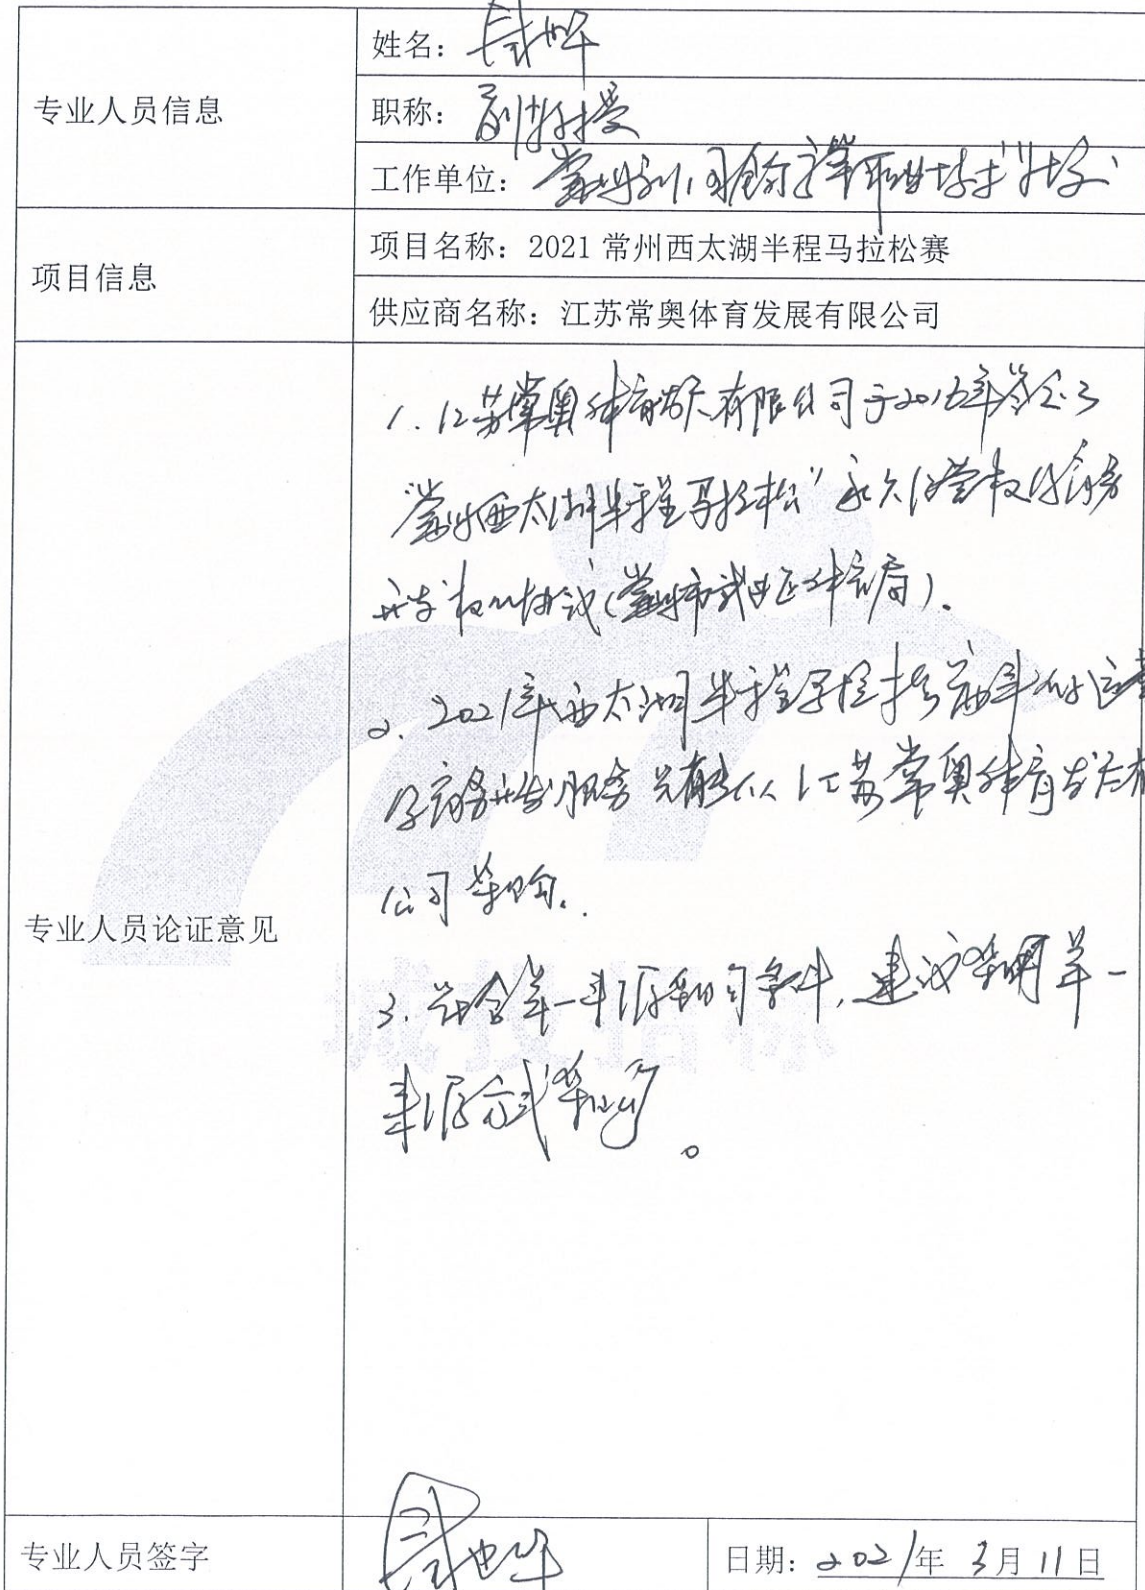 专业人员信息
姓名：
职称：副教授
工作单位：常州刘国钧高等职业技术学校
项目信息
项目名称：2021 常州西太湖半程马拉松赛
供应商名称：江苏常奥体育发展有限公司
专业人员论证意见
1. 江苏常奥体育发展有限公司于2016年签订了
“常州西太湖半程马拉松”永久运营权及商务
开发权的协议（常州市武进区体育局）.
2. 2021年西太湖半程马拉松赛事的运营
及商务开发服务只能从江苏常奥体育发展有
公司采购.
3. 符合单一来源采购条件, 建议采用单一
来源方式采购。
专业人员签字
日期：2021年 3月 11日